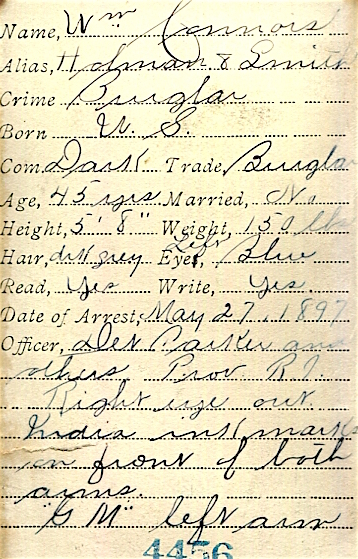 Name, Wm Connors
Alias, Holman & Smith
Crime Burglar
Born U. S.
Com Dark Trade, Burglar
Age, 45 yrs Married, No
Height, 5' 8" Weight, 150 lbs
Hair, dk grey Left Eye, Blue
Read, Yes Write, Yes.
Date of Arrest, May 27, 1897
Officer, Det Parker and
others Prov R.I.
Right eye out
India ink marks
on front of both
arms.
"G M" left arm
4456